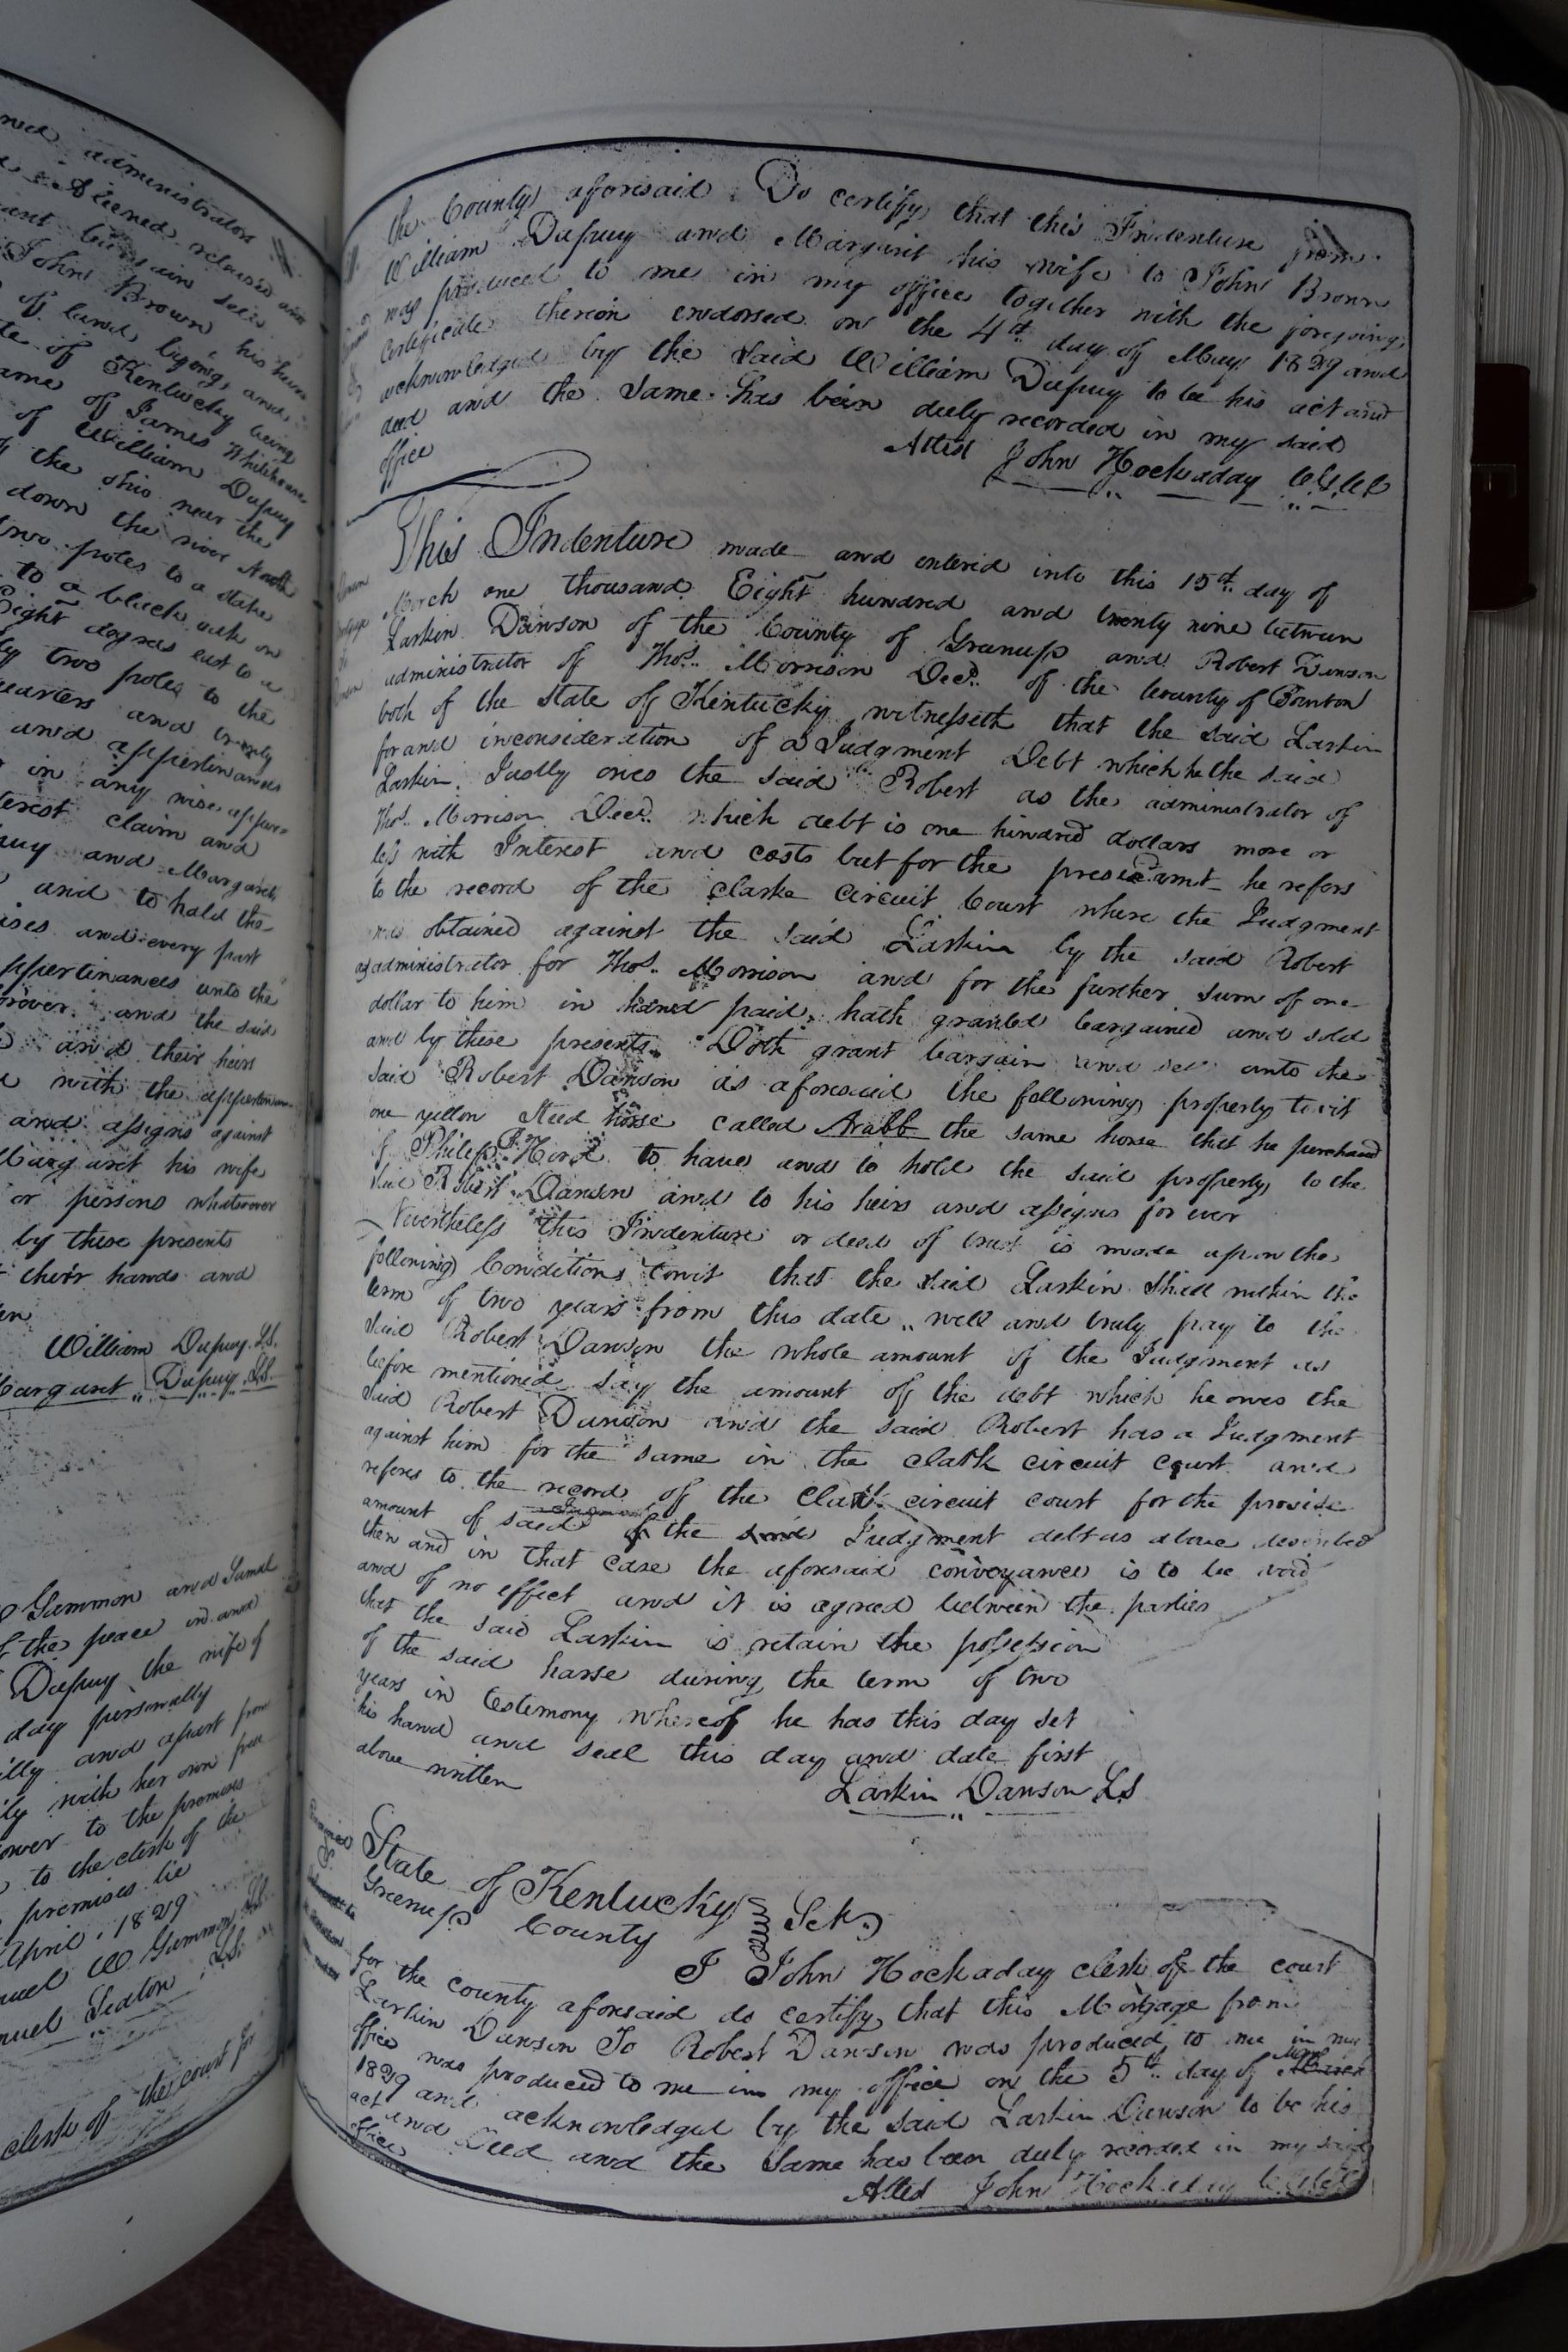 administrators
Aliened released and
John Brown his heirs
of land lying and
of Kentucky being
of James Whitehouse
of William Dupuy
the ohio near the
down the river North
two poles to a stake
to a black oak on
Eight degrees east to a
two poles to the
and appertinances
in any wise apper-
terest claim and
and Margaret
and to hold the
and every part
appertinances unto the
and the said
and their heirs
with the
and assigns against
Margaret his wife
or persons whatsoever
by these presents
their hands and
William Dupuy LS.
Margaret Dupuy LS.
Gammon and
the peace in and
Dupuy the wife of
day personally
and apart from
with her own free
to the premises
to the clerk of the
premises lie
April 1829
W Gammon LS
Seaton LS
clerk of the court for
the County aforesaid Do certify that this Indenture from
William Dupuy and Margarit his wife to John Brown
was produced to me in my office together with the foregoing
certificate thereon endorsed on the 4th day of May 1829 and
acknowledged by the said William Dupuy to be his act and
deed and the same has been duly recorded in my said
office
Attest John Hockaday
This Indenture made and entered into this 15th day of
March one thousand Eight hundred and twenty nine between
Larkin Dawson of the County of Greenup and Robert Dawson
administrator of Thos. Morrison Decd. of the County of
both of the state of Kentucky witnesseth that the said Larkin
for and inconsideration of a Judgment Debt which he the said
Larkin Justly owes the said Robert as the administrator of
Thos. Morrison Decd. which debt is one hundred dollars more or
less with Interest and costs but for the amt he refers
to the record of the clarke circuit Court where the Judgment
was obtained against the said Larkin by the said Robert
as administrator for Thos. Morrison and for the further sum of one
dollar to him in hand paid, hath granted bargained and sold
and by these presents Doth grant bargain and sell unto the
said Robert Dawson as aforesaid the following property towit
one yellow Stud horse called Arabb the same horse that he purchased
of Philip to have and to hold the said property to the
said Robert Dawson and to his heirs and assigns for ever
Nevertheless this Indenture or deed of trust is made upon the
following Conditions towit that the said Larkin Shall within the
term of two years from this date well and truly pay to the
said Robert Dawson the whole amount of the Judgment as
before mentioned say the amount of the debt which he owes the
said Robert Dawson and the said Robert has a Judgment
against him for the same in the clark circuit court and
referes to the record of the clark circuit court for the
amount of said the said Judgment debt as above described
then and in that case the aforesaid conveyance is to be void
and of no effect and it is agreed between the parties
that the said Larkin is retain the possession
of the said harse during the term of two
years in testimony whereof he has this day set
his hand and seal this day and date first
above written
Larkin Dawson LS
State of Kentucky
Greenup County Sct
I John Hockaday clerk of the court
for the county aforesaid do certify that this Mortgage from
Larkin Dawson To Robert Dawson was produced to me in my
office was produced to me in my office on the 5th day of
1829 and acknowledged by the said Larkin Dawson to be his
act and Deed and the same has been duly recorded in my said
office
Attest John Hockaday